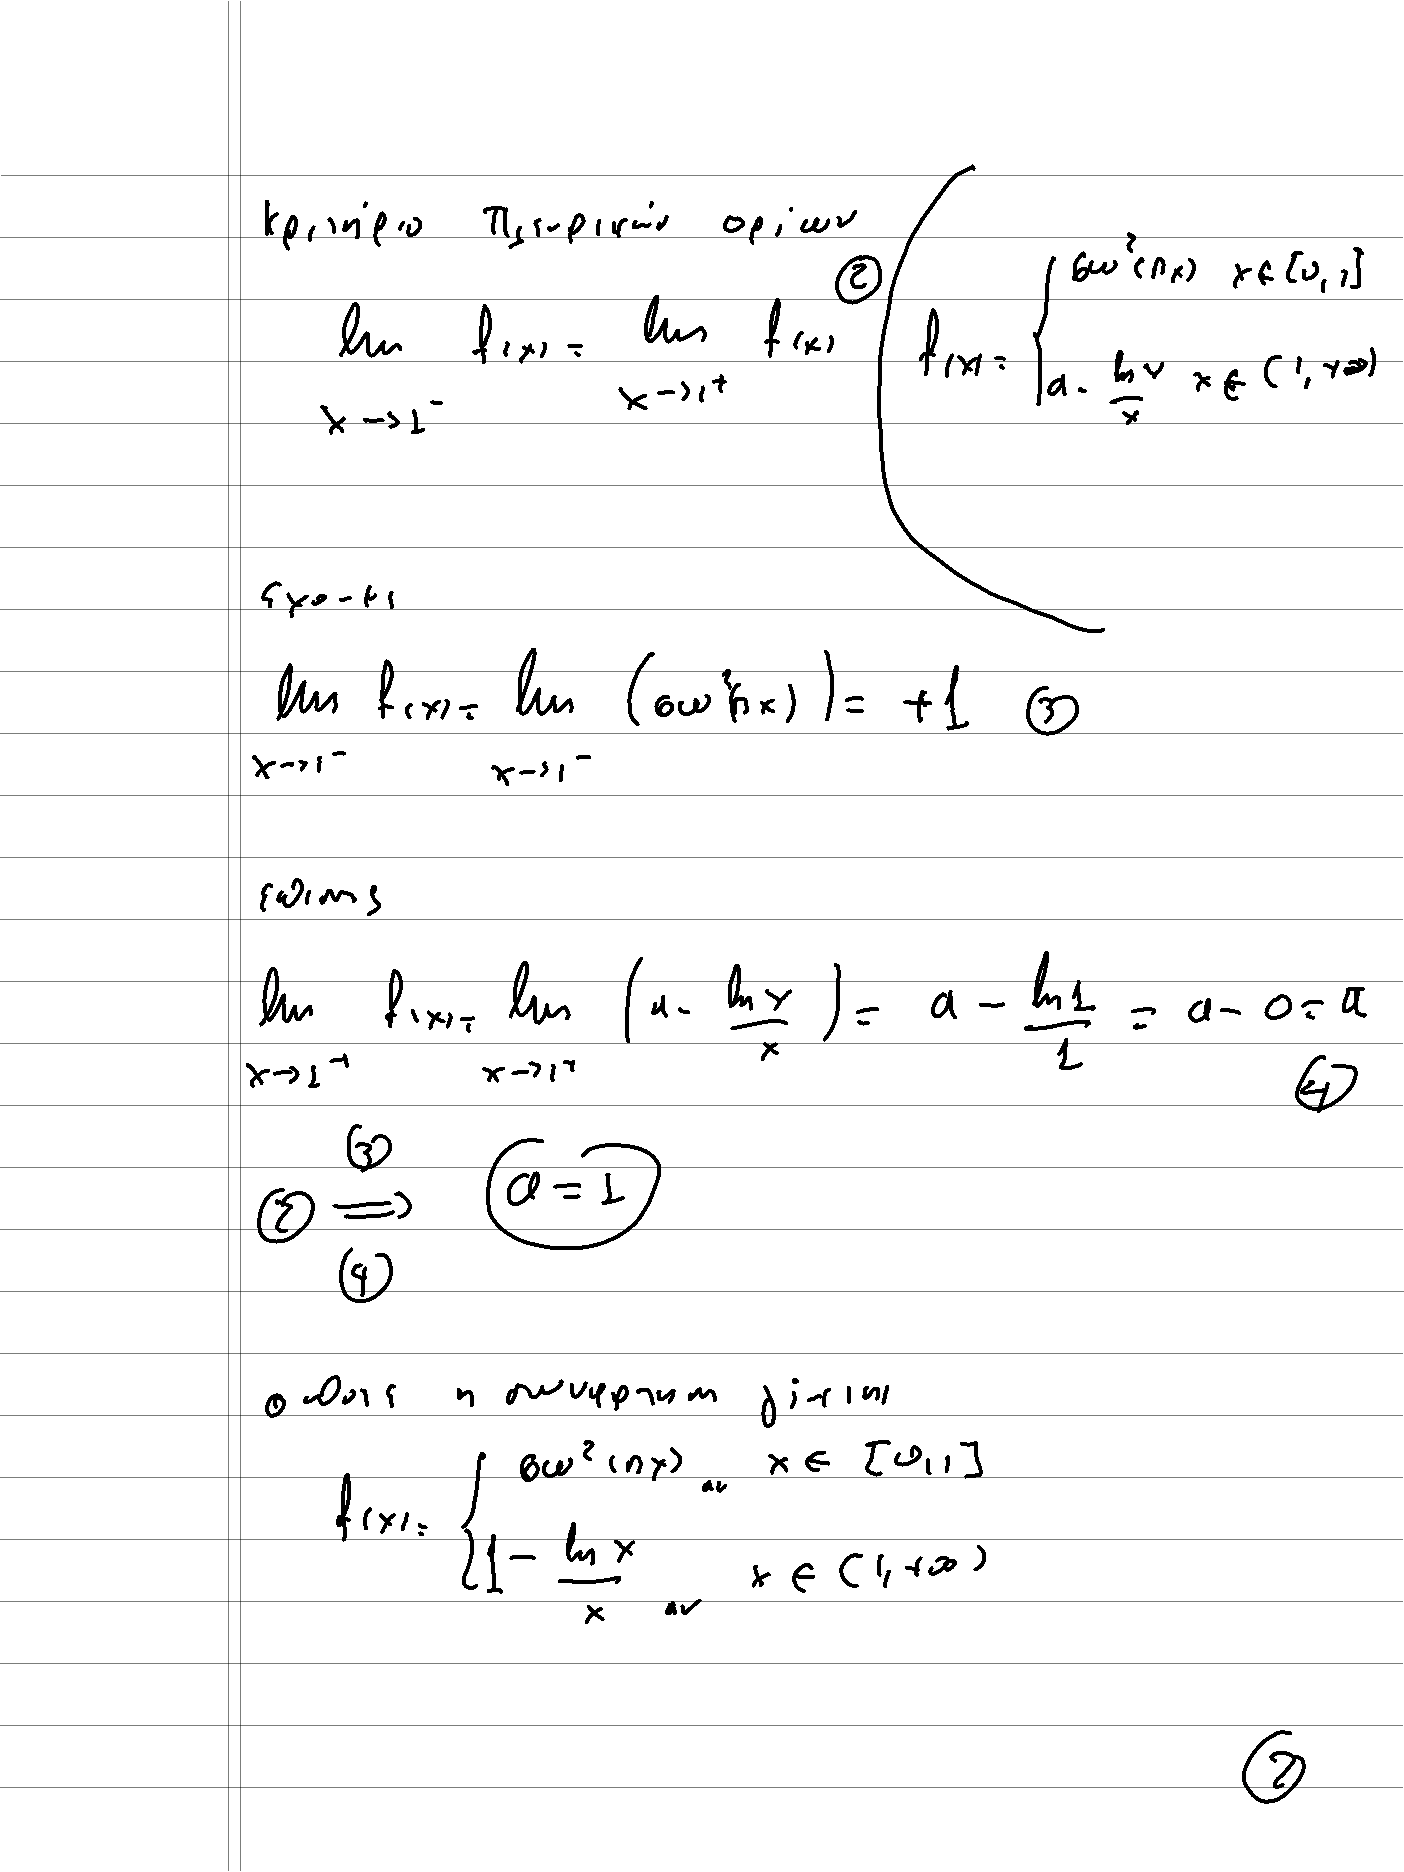 Κριτήριο Πλευρικών ορίων
lim f(x) = lim f(x) ②
x→1⁻ x→1⁺
f(x) = { συν²(πx) x ∈ [0,1]
α - lnx/x x ∈ (1,+∞)
έχουμε
lim f(x) = lim (συν²(πx)) = +1 ③
x→1⁻ x→1⁻
επίσης
lim f(x) = lim (α - lnx/x) = α - ln1/1 = α - 0 = α
x→1⁺ x→1⁺ ④
③
② ⇒ α = 1
④
οπότε η συνάρτηση γίνεται
f(x) = { συν²(πx) αν x ∈ [0,1]
1 - lnx/x αν x ∈ (1,+∞)
②